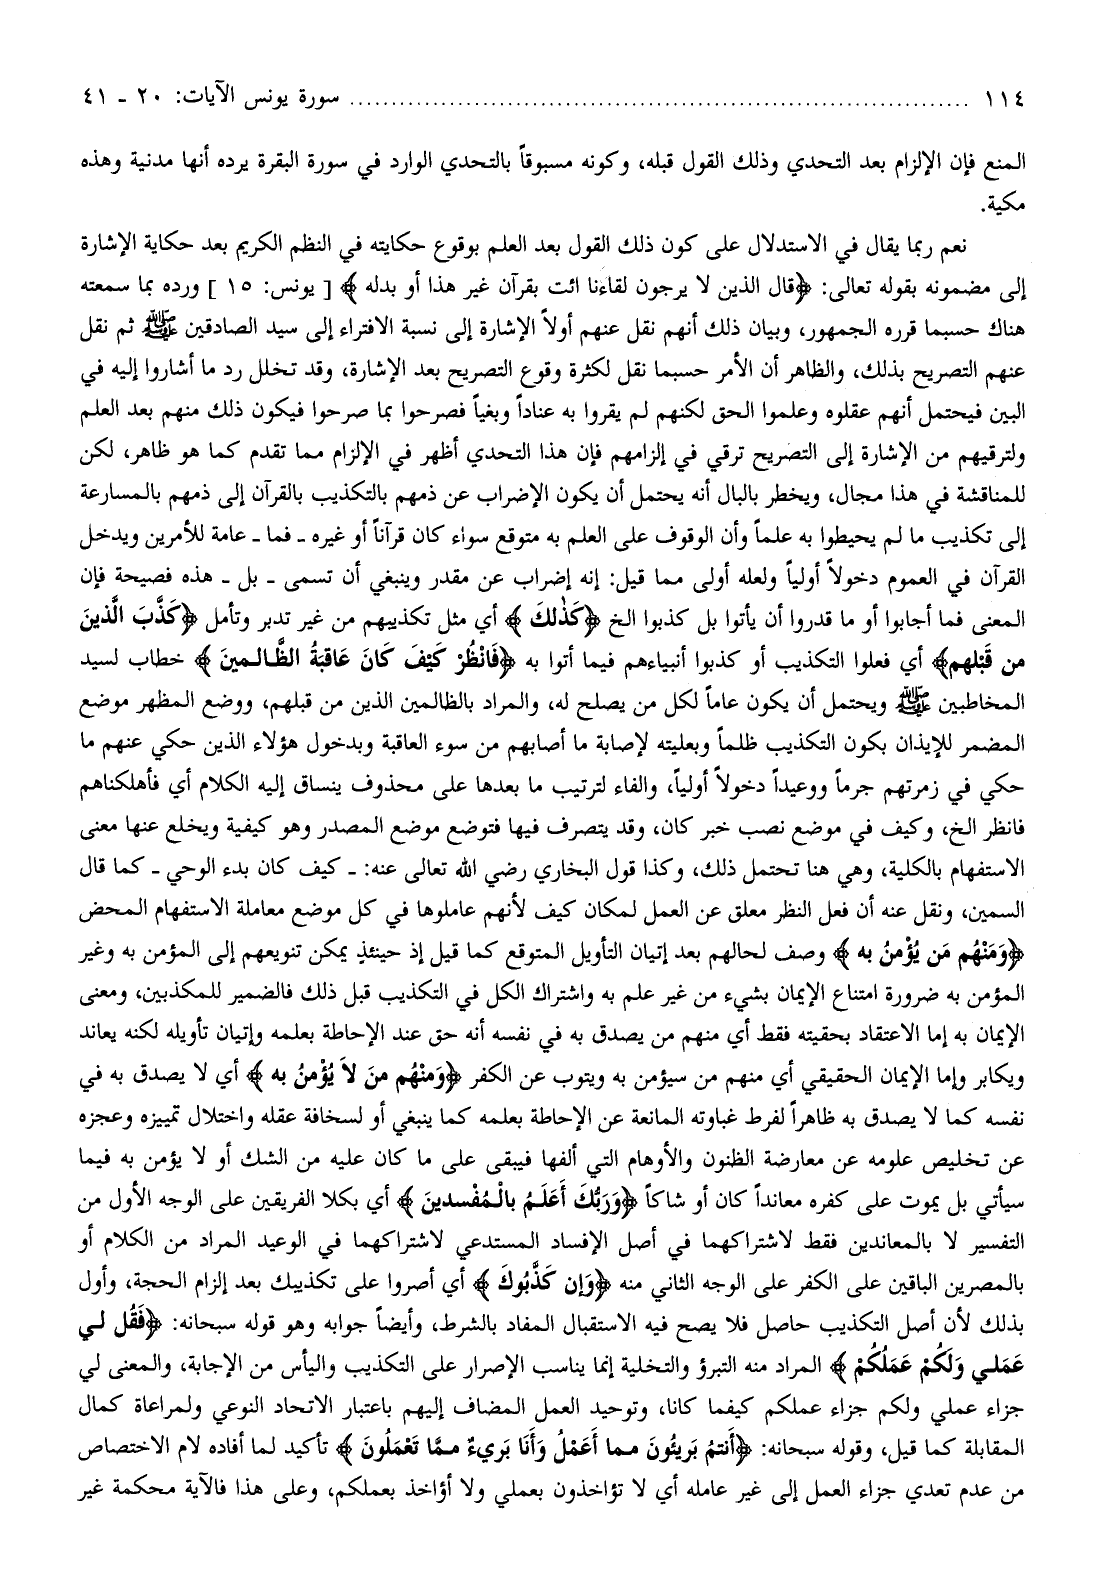 ١١٤ ........................................................................ سورة يونس الآيات: ٢٠ ـ ٤١
المنع فإن الإلزام بعد التحدي وذلك القول قبله، وكونه مسبوقاً بالتحدي الوارد في سورة البقرة يرده أنها مدنية وهذه
مكية.
نعم ربما يقال في الاستدلال على كون ذلك القول بعد العلم بوقوع حكايته في النظم الكريم بعد حكاية الإشارة
إلى مضمونه بقوله تعالى: ﴿قال الذين لا يرجون لقاءنا ائت بقرآن غير هذا أو بدله﴾ [ يونس: ١٥ ] ورده بما سمعته
هناك حسبما قرره الجمهور، وبيان ذلك أنهم نقل عنهم أولاً الإشارة إلى نسبة الافتراء إلى سيد الصادقين ﷺ ثم نقل
عنهم التصريح بذلك، والظاهر أن الأمر حسبما نقل لكثرة وقوع التصريح بعد الإشارة، وقد تخلل رد ما أشاروا إليه في
البين فيحتمل أنهم عقلوه وعلموا الحق لكنهم لم يقروا به عناداً وبغياً فصرحوا بما صرحوا فيكون ذلك منهم بعد العلم
ولترقيهم من الإشارة إلى التصريح ترقي في إلزامهم فإن هذا التحدي أظهر في الإلزام مما تقدم كما هو ظاهر، لكن
للمناقشة في هذا مجال، ويخطر بالبال أنه يحتمل أن يكون الإضراب عن ذمهم بالتكذيب بالقرآن إلى ذمهم بالمسارعة
إلى تكذيب ما لم يحيطوا به علماً وأن الوقوف على العلم به متوقع سواء كان قرآناً أو غيره ـ فما ـ عامة للأمرين ويدخل
القرآن في العموم دخولاً أولياً ولعله أولى مما قيل: إنه إضراب عن مقدر وينبغي أن تسمى ـ بل ـ هذه فصيحة فإن
المعنى فما أجابوا أو ما قدروا أن يأتوا بل كذبوا الخ ﴿كَذٰلكَ﴾ أي مثل تكذيبهم من غير تدبر وتأمل ﴿كَذَّبَ الَّذينَ
من قَبْلهم﴾ أي فعلوا التكذيب أو كذبوا أنبياءهم فيما أتوا به ﴿فَانْظُرْ كَيْفَ كَانَ عَاقبَةُ الظَّالمينَ﴾ خطاب لسيد
المخاطبين ﷺ ويحتمل أن يكون عاماً لكل من يصلح له، والمراد بالظالمين الذين من قبلهم، ووضع المظهر موضع
المضمر للإيذان بكون التكذيب ظلماً وبعليته لإصابة ما أصابهم من سوء العاقبة وبدخول هؤلاء الذين حكي عنهم ما
حكي في زمرتهم جرماً ووعيداً دخولاً أولياً، والفاء لترتيب ما بعدها على محذوف ينساق إليه الكلام أي فأهلكناهم
فانظر الخ، وكيف في موضع نصب خبر كان، وقد يتصرف فيها فتوضع موضع المصدر وهو كيفية ويخلع عنها معنى
الاستفهام بالكلية، وهي هنا تحتمل ذلك، وكذا قول البخاري رضي الله تعالى عنه: ـ كيف كان بدء الوحي ـ كما قال
السمين، ونقل عنه أن فعل النظر معلق عن العمل لمكان كيف لأنهم عاملوها في كل موضع معاملة الاستفهام المحض
﴿وَمنْهُم مَن يُؤْمنُ به﴾ وصف لحالهم بعد إتيان التأويل المتوقع كما قيل إذ حينئذٍ يمكن تنويعهم إلى المؤمن به وغير
المؤمن به ضرورة امتناع الإيمان بشيء من غير علم به واشتراك الكل في التكذيب قبل ذلك فالضمير للمكذبين، ومعنى
الإيمان به إما الاعتقاد بحقيته فقط أي منهم من يصدق به في نفسه أنه حق عند الإحاطة بعلمه وإتيان تأويله لكنه يعاند
ويكابر وإما الإيمان الحقيقي أي منهم من سيؤمن به ويتوب عن الكفر ﴿وَمنْهُم منَ لاَ يُؤْمنُ به﴾ أي لا يصدق به في
نفسه كما لا يصدق به ظاهراً لفرط غباوته المانعة عن الإحاطة بعلمه كما ينبغي أو لسخافة عقله واختلال تمييزه وعجزه
عن تخليص علومه عن معارضة الظنون والأوهام التي ألفها فيبقى على ما كان عليه من الشك أو لا يؤمن به فيما
سيأتي بل يموت على كفره معانداً كان أو شاكاً ﴿وَرَبُّكَ أَعَلَمُ بالْمُفْسدينَ﴾ أي بكلا الفريقين على الوجه الأول من
التفسير لا بالمعاندين فقط لاشتراكهما في أصل الإفساد المستدعي لاشتراكهما في الوعيد المراد من الكلام أو
بالمصرين الباقين على الكفر على الوجه الثاني منه ﴿وَإن كَذَّبُوكَ﴾ أي أصروا على تكذيبك بعد إلزام الحجة، وأول
بذلك لأن أصل التكذيب حاصل فلا يصح فيه الاستقبال المفاد بالشرط، وأيضاً جوابه وهو قوله سبحانه: ﴿فَقُل لي
عَمَلي وَلَكُمْ عَمَلُكُمْ﴾ المراد منه التبرؤ والتخلية إنما يناسب الإصرار على التكذيب واليأس من الإجابة، والمعنى لي
جزاء عملي ولكم جزاء عملكم كيفما كانا، وتوحيد العمل المضاف إليهم باعتبار الاتحاد النوعي ولمراعاة كمال
المقابلة كما قيل، وقوله سبحانه: ﴿أَنتمُ بَريئُونَ مما أَعَمْلُ وَأَنَا بَريءٌ ممَّا تَعْمَلُونَ﴾ تأكيد لما أفاده لام الاختصاص
من عدم تعدي جزاء العمل إلى غير عامله أي لا تؤاخذون بعملي ولا أؤاخذ بعملكم، وعلى هذا فالآية محكمة غير